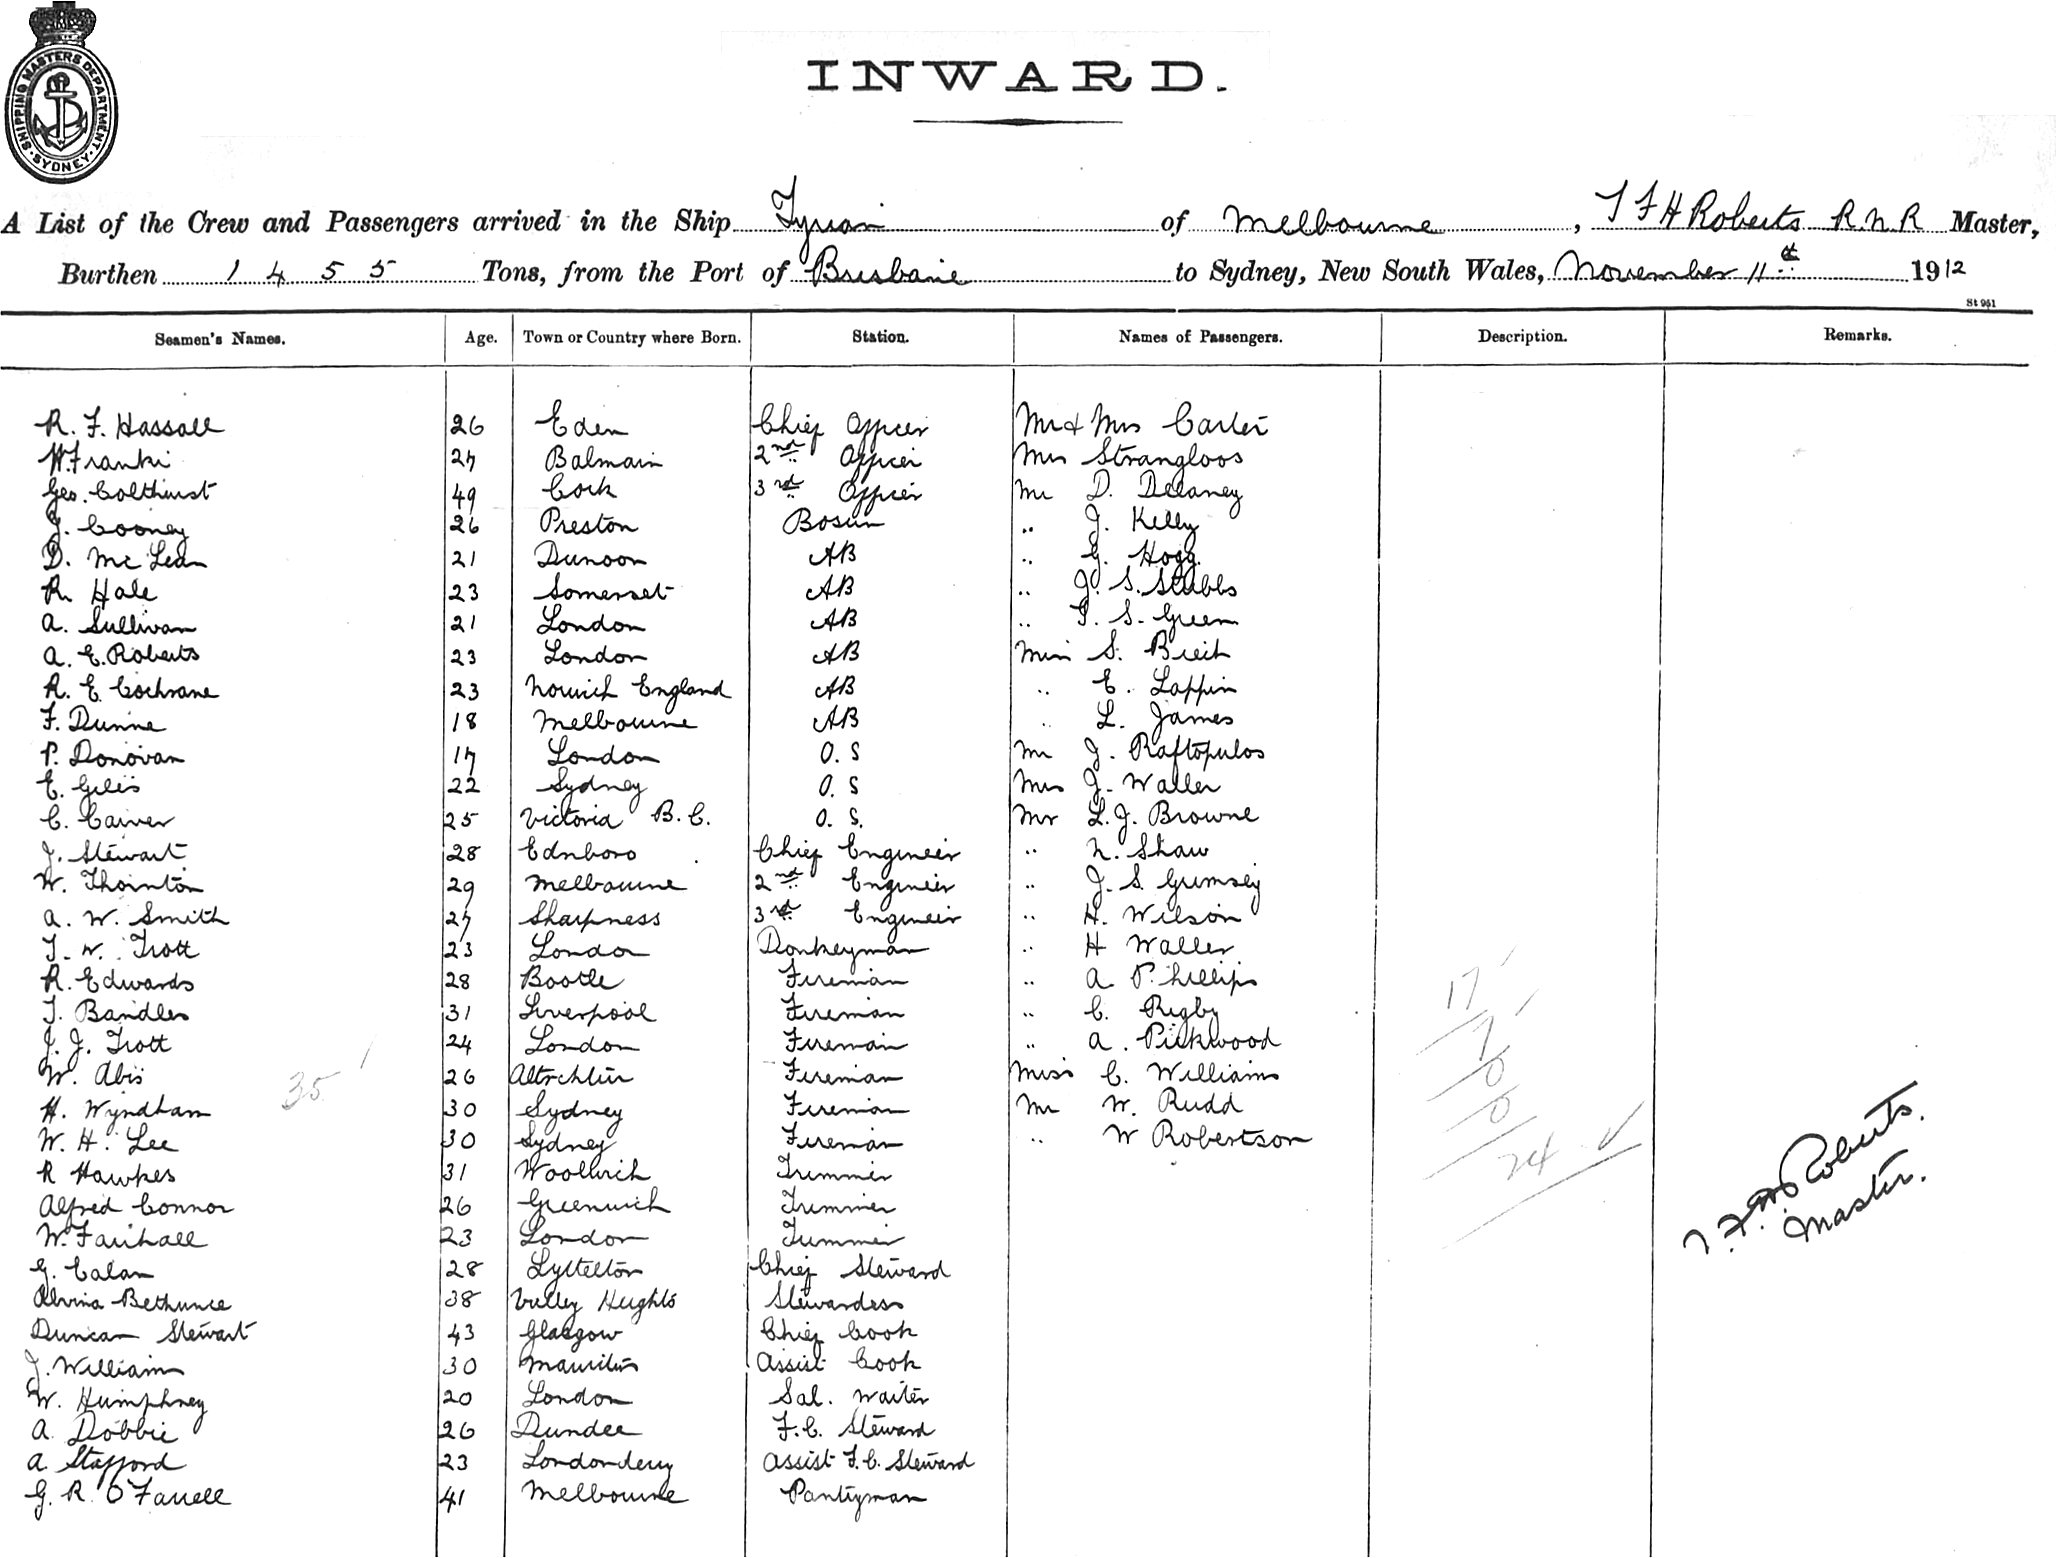 SHIPPING MASTERS DEPARTMENT
SYDNEY
INWARD.
A List of the Crew and Passengers arrived in the Ship Tyrian of Melbourne, T F H Roberts R.N.R Master,
Burthen 1455 Tons, from the Port of Brisbane to Sydney, New South Wales, November 11th 1912
St 951
Seamen's Names. Age. Town or Country where Born. Station. Names of Passengers. Description. Remarks.
R. F. Hassall 26 Eden Chief Officer Mr & Mrs Carter
W. Franki 27 Balmain 2nd Officer Mrs Strangloos
Geo. Colthurst 49 Cork 3rd Officer Mr D. Delaney
J. Cooney 26 Preston Bosun " J. Kelly
D. McLean 21 Dunoon AB " G. Hogg
R. Hale 23 Somerset AB " J. S. Stubbs
A. Sullivan 21 London AB " T. S. Green
A. E. Roberts 23 London AB Miss S. Breit
R. E. Cochrane 23 Norwich England AB " E. Lappin
F. Dunne 18 Melbourne AB " L. James
P. Donovan 17 London O. S Mr J. Raftopulos
E. Giles 22 Sydney O. S Mrs J. Waller
C. Carver 25 Victoria B. C. O. S. Mr L. J. Browne
J. Stewart 28 Ednboro Chief Engineer " N. Shaw
W. Thornton 29 Melbourne 2nd Engineer " J. S. Gumsey
A. W. Smith 27 Sharpness 3rd Engineer " H. Wilson
T. W. Trott 23 London Donkeyman " H Waller
R. Edwards 28 Bootle Fireman " A Phillips 17
T. Bandles 31 Liverpool Fireman " C. Rigby 7
J. J. Trott 24 London Fireman " A. Pickwood 0
W. Abis 35 26 Fireman Miss C. Williams 0
H. Wyndham 30 Sydney Fireman Mr W. Rudd
W. H. Lee 30 Sydney Fireman " W Robertson 24
R Hawkes 31 Woolwich Trimmer
Alfred Connor 26 Greenwich Trimmer
W. Fairhall 23 London Trimmer
T. F. H. Roberts.
Master.
G. Calan 28 Lyttelton Chief Steward
Alvina Bethunce 38 Valley Heights Stewardess
Duncan Stewart 43 Glasgow Chief Cook
J. Williams 30 Mauritius Assist Cook
W. Humphrey 20 London Sal. Waiter
A. Dobbie 26 Dundee F. C. Steward
A. Stafford 23 Londonderry Assist F. C. Steward
G. R. O'Farrell 41 Melbourne Pantryman